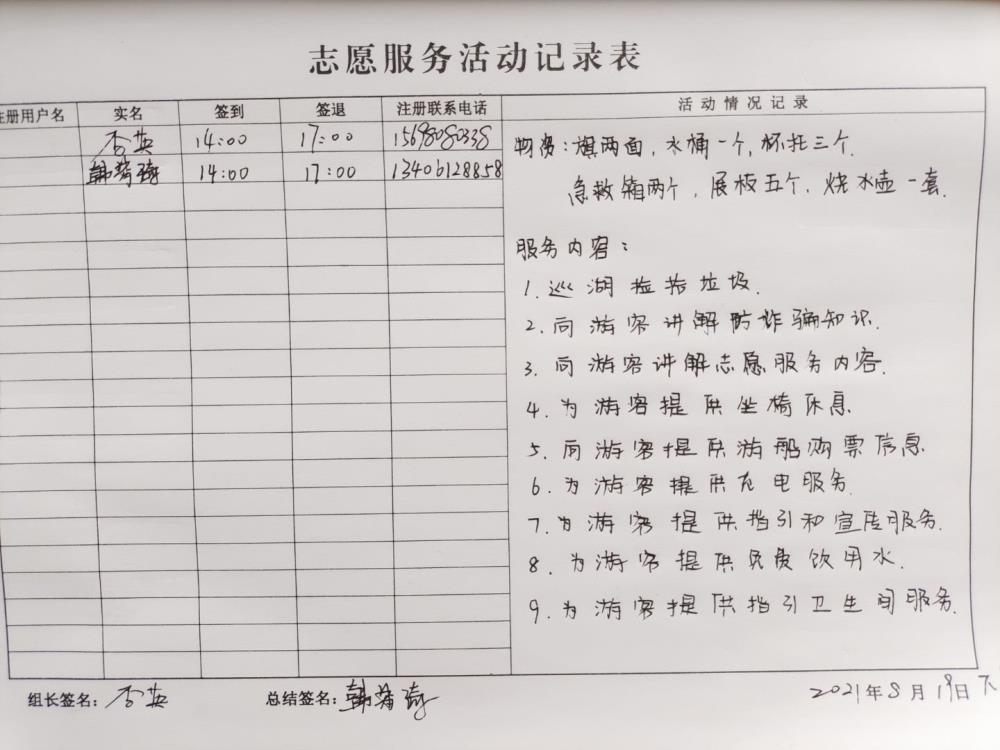 志愿服务活动记录表
注册用户名 实名 签到 签退 注册联系电话 活动情况记录
14:00 17:00 15698080338
14:00 17:00 13406128858
物资:旗两面,水桶一个,杯托三个.
急救箱两个,展板五个.烧水壶一套.
服务内容:
1.巡湖捡拾垃圾.
2.向游客讲解防诈骗知识.
3.向游客讲解志愿服务内容.
4.为游客提供坐椅休息
5.向游客提供游船购票信息
6.为游客提供充电服务.
7.为游客提供指引和宣传服务.
8.为游客提供免费饮用水.
9.为游客提供指引卫生间服务.
组长签名: 总结签名: 2021年8月19日下